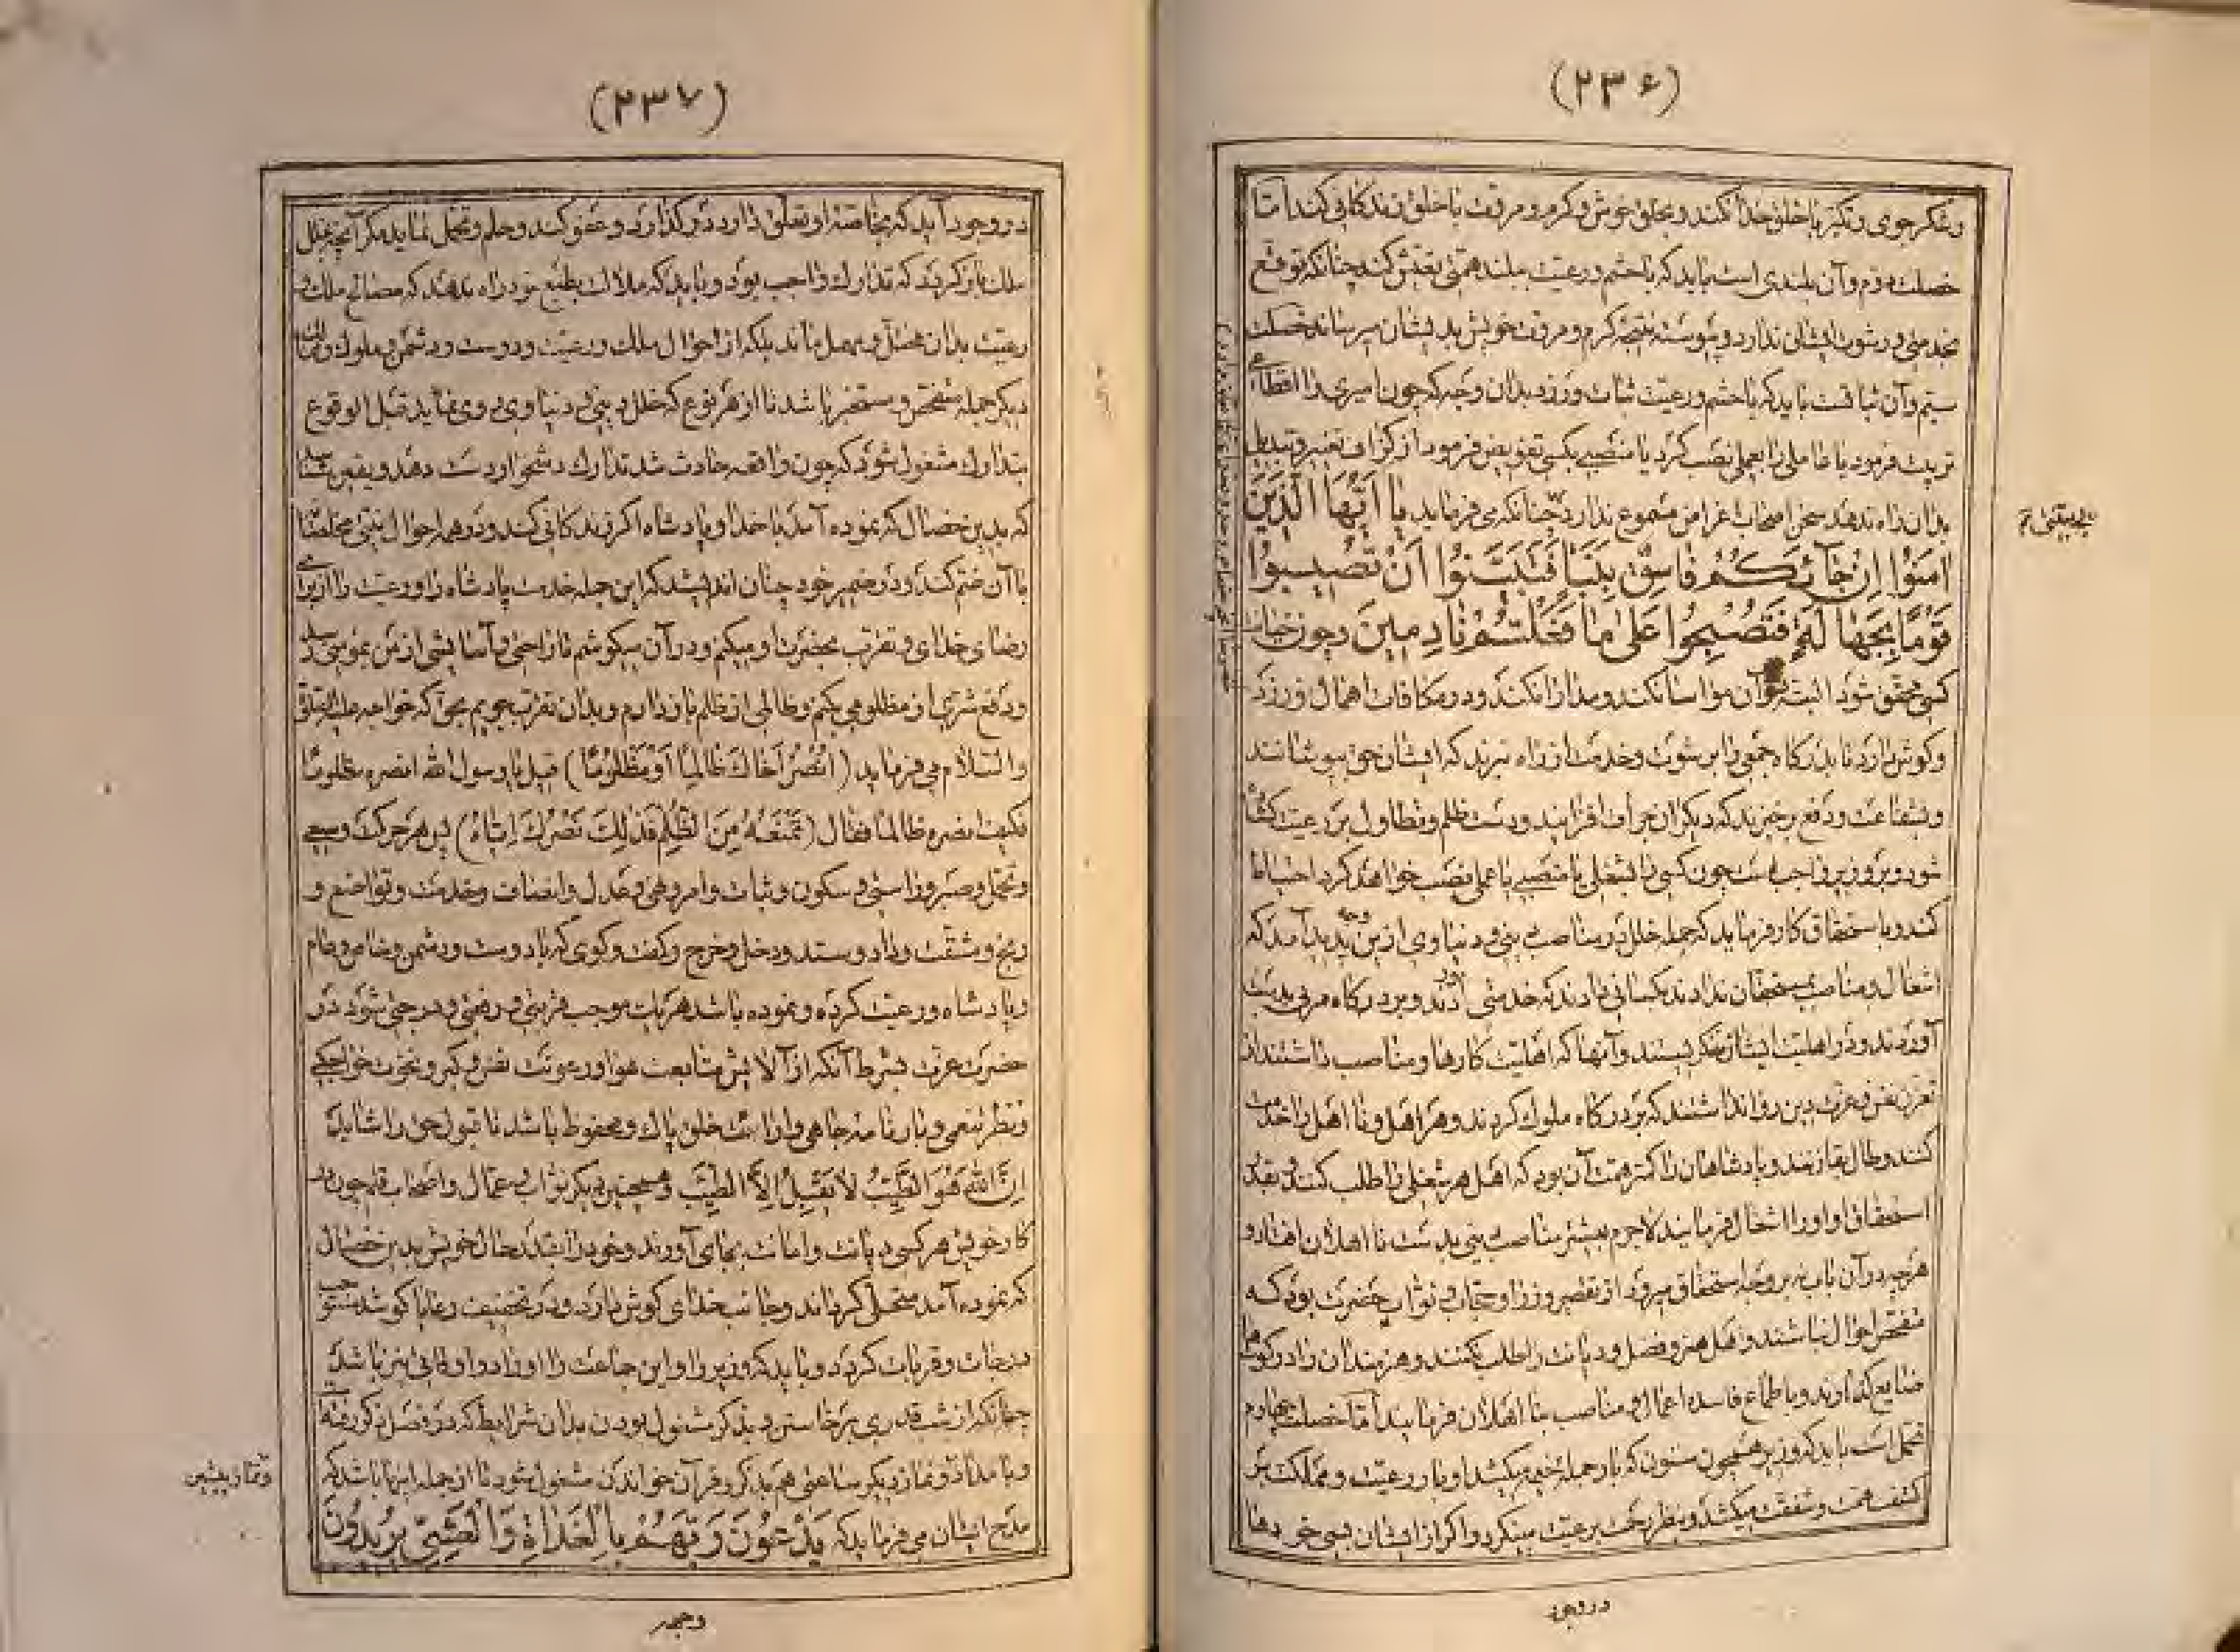 (۲۳۶)
و شکر جوی و تکبر با خلق خدا نکند و بخلق خوش و کرم و مروت با خلق زندگانی کند اما
خصلت دوم و آن بلندی است باید که با حشم و رعیت ببلند همتی تعیش کند چنانکه توقع
خدمتی و رشوت ایشان ندارد و پیوسته نتیجه کرم و مروت خویش بدیشان میرساند خصلت
سیم و آن ثباتست باید که با حشم و رعیت ثبات ورزد بدان وجه که چون امیری را اقطاعی
تربیت فرمود یا عاملی را بعملی نصب کرد یا منصبی بکسی تفویض فرمود از گزاف تغییر و تبدیل
بدان راه ندهد سخن اصحاب اغراض مسموع ندارد چنانکه می فرماید یا ایها الذین
آمنوا ان جائکم فاسق بنبا فتبینوا ان تصیبوا
قوما بجهالة فتصبحوا علی ما فعلتم نادمین و چون خیانت
کسی محقق شود البته در آن مواسا نکند و مدارا نکند و در مکافات اهمال ورزد
و گوش دارد تا بدرگاه جمعی را برشوت و خدمت از راه نبرند که ایشان حق بپوشانند
و بشفاعت و دفع برخیزند که دیگران جرات افزایند و دست ظلم و تطاول بر رعیت گشاده
شود و بر وزیر واجب است چون کسی را بشغلی یا منصبی یا عملی نصب خواهد کرد احتیاط
کند و باستحقاق کار فرماید که جمله خلل در مناصب دینی و دنیاوی ازین وجه پدید آمد که
اشغال و مناصب بمستحقان ندادند بکسانی دادند که خدمتی آوردند و بر درگاه مربی بدست
آوردند و در اهلیت ایشان ننگریستند و آنها که اهلیت کارها و مناصب داشتند از
تعزز نفس و عزت دین روا نداشتند که بر درگاه ملوک گردند و هر اهل و نا اهل را خدمت
کنند و مال بقا زنند و پادشاهان را کمتر همت آن بود که اهل هر شغلی را طلب کنند و بقدر
استحقاق او او را اشغال فرمایند لاجرم بیشتر مناصب دینی بدست نا اهلان افتاد و
هر چه در آن باب نه بر وجه استحقاق میرود از تقصیر وزرا و حجاب و نواب حضرت بود که
متفحص احوال نباشند و اهل هنر و فضل و دیانت را طلب نکنند و هنرمندان را در گوشها
ضایع گذارند و باطماع فاسده اعمال و مناصب بنا اهلان فرمایند اما خصلت چهارم
تحمل است باید که وزیر همچون ستون که بار جمله خیمه میکشد او بار رعیت و مملکت بر
کتف همت و شفقت میکشد و بنظر رحمت برعیت مینگرد و اگر از ایشان بسهی خورده‌ها
در وجود
(۲۳۷)
در وجود آید که بخاصه او تعلق دارد در گذارد و عفو کند و حلم و تحمل نماید مگر آنچه بخلل
ملک باز گردد که تدارک واجب بود و باید که ملالت بطبع خود راه ندهد که مصالح ملک و
رعیت بدان مختل و مهمل ماند بلکه از احوال ملک و رعیت و دوست و دشمن و ملوک
دیگر جمله متفحص و مستخبر باشد تا از هر نوع که خلل دینی و دنیاوی روی نماید قبل الوقوع
بتدارک مشغول شود که چون واقعه حادث شد تدارک دشخوار دست دهد و یقین شناسد
که بدین خصال که نموده آمد با خدا و پادشاه اگر زندگانی کند و در همه احوال نیتی مخلصانه
با آن ضم کند و در ضمیر خود چنان اندیشد که این جمله خدمت پادشاه را و رعیت را از برای
رضای خدای و تقرب بحضرت او میکنم و در آن میکوشم تا راحتی و آسایشی از من بمومنی رسد
و دفع شری از مظلومی بکنم و ظالمی از ظلم باز دارم و بدان تقرب جویم بحق که خواجه علیه الصلوة
والسلام می فرماید (انصر اخاک ظالما او مظلوما) قیل یا رسول الله انصره مظلوما
فکیف انصره ظالما فقال (تمنعه من الظلم فذلک نصرک ایاه) پس هر حرکت و سعی
و تحمل و صبر و راستی و سکون و ثبات و امر و نهی و عدل و انصاف و خدمت و تواضع و
رنج و مشقت و داد و ستد و دخل و خرج و گفت و گوی که با دوست و دشمن و خاص و عام
و پادشاه و رعیت کرده و نموده باشد هر یک موجب قربتی و رفعتی و درجتی شود در
حضرت عزت بشرط آنکه از آلایش متابعت هوا و رعونت نفس و کبر و نخوت خواجگی
و نظر تنعمی و بارنامه جاهی و مراآت خلق پاک و محفوظ باشد تا قبول حق را شاید
ان الله هو الطیب لا یقبل الا الطیب و همچنین دیگر نواب و عمال و اصحاب قلم چون در
کار خویش هر کسی دیانت و امانت بجای آورند و خود را بقدر حال خویش بدین خصال
که نموده آمد متحلی گرداند و جانب خدای گوش دارد و در تخفیف رعایا کوشد مستوجب
درجات و قربات گردد و باید که وزیر را و این جماعت را اوراد و اوقاتی نیز باشد
چنانکه از شب قدری برخاستن و بذکر مشغول بودن بدان شرایط که در فصل ذکر رفته است
و بامداد و نماز دیگر ساعتی هم بذکر و قرآن خواندن مشغول شود تا از جمله اینها باشد که
مدح ایشان می فرماید که یدعون ربهم بالغداة والعشی یریدون
و نماز پیشین
وجهه